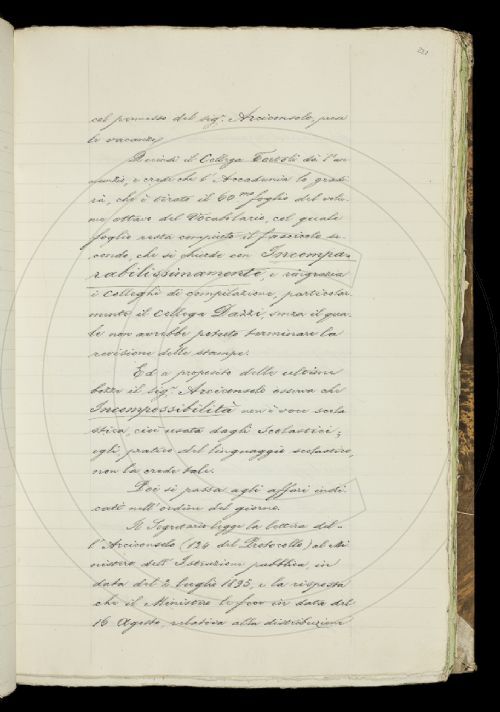 221
col permesso del sig.r Arciconsolo, prese
le vacanze.
Perciò il Collega Tortoli dà l'an
nunzio, e crede che l'Accademia lo gradi
rà, che è tirato il 60.mo foglio del volu
me ottavo del Vocabolario, col quale
foglio resta compiuto il fascicolo se
condo, che si chiude con Incompa-
rabilissimamente, e ringrazia
i colleghi di compilazione, particolar
mente il collega Dazzi, senza il qua
le non avrebbe potuto terminare la
revisione delle stampe.
Ed a proposito delle ultime
bozze il sig.r Arciconsolo osserva che
Incompossibilità non è voce scola
stica, cioè usata dagli Scolastici;
egli, pratico del linguaggio scolastico,
non la crede tale.
Poi si passa agli affari indi
cati nell'ordine del giorno.
Il Segretario legge la lettera del-
l'Arciconsolo (124 del Protocollo) al Mi
nistero dell'Istruzione pubblica, in
data del 2 luglio 1895, e la risposta
che il Ministro le fece in data del
16 Agosto, relativa alla distribuzione